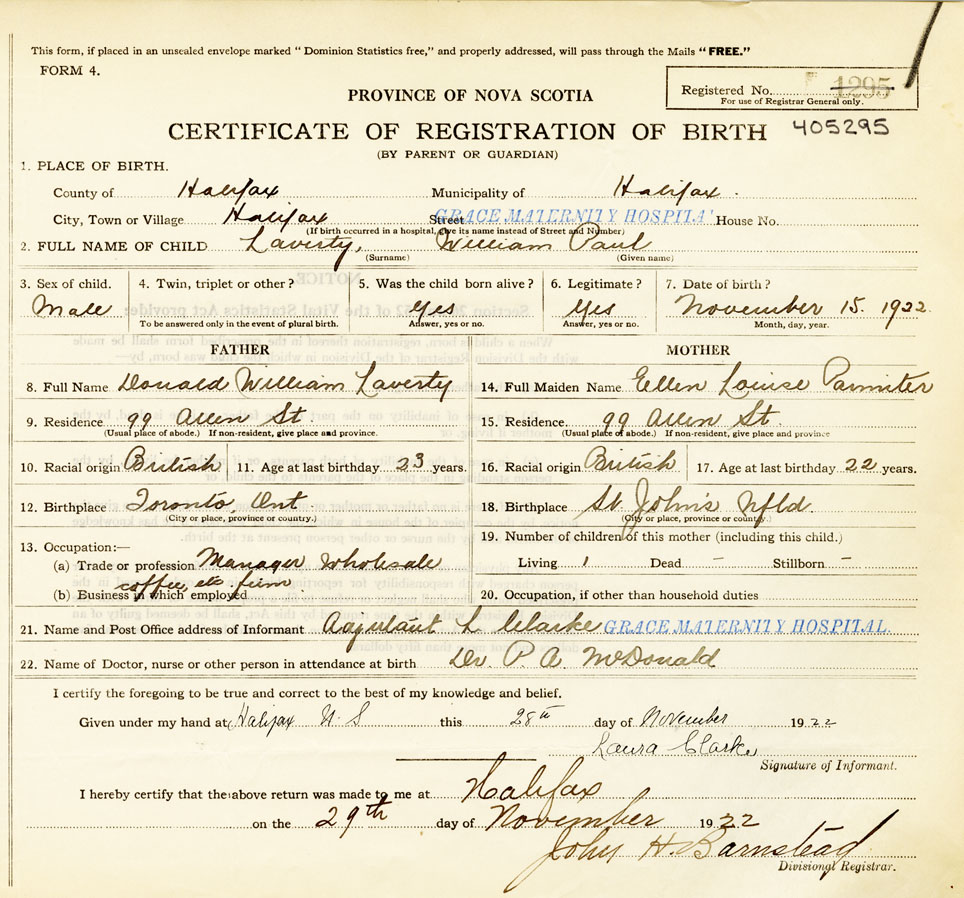 This form, if placed in an unsealed envelope marked "Dominion Statistics free," and properly addressed, will pass through the Mails "FREE."
FORM 4.
Registered No. 1295
For use of Registrar General only.
PROVINCE OF NOVA SCOTIA
CERTIFICATE OF REGISTRATION OF BIRTH 405295
(BY PARENT OR GUARDIAN)
1. PLACE OF BIRTH.
County of Halifax Municipality of Halifax.
City, Town or Village Halifax Street GRACE MATERNITY HOSPITA House No.
(If birth occurred in a hospital, give its name instead of Street and Number)
2. FULL NAME OF CHILD Laverty, William Paul
(Surname) (Given name)
3. Sex of child. 4. Twin, triplet or other? 5. Was the child born alive? 6. Legitimate? 7. Date of birth?
Male Yes Yes November 15. 1922.
To be answered only in the event of plural birth. Answer, yes or no. Answer, yes or no. Month, day, year.
FATHER MOTHER
8. Full Name Donald William Laverty 14. Full Maiden Name Ellen Louise Parmiter
9. Residence 99 Allen St. 15. Residence. 99 Allen St.
(Usual place of abode.) If non-resident, give place and province. (Usual place of abode.) If non-resident, give place and province
10. Racial origin British 11. Age at last birthday 23 years. 16. Racial origin British 17. Age at last birthday 22 years.
12. Birthplace Toronto, Ont 18. Birthplace St. John's Nfld.
(City or place, province or country.) (City or place, province or country.)
13. Occupation:— 19. Number of children of this mother (including this child.)
(a) Trade or profession Manager Wholesale Living 1 Dead – Stillborn –
coffee, etc. firm
(b) Business in which employed 20. Occupation, if other than household duties
21. Name and Post Office address of Informant Adjutant L Clarke GRACE MATERNITY HOSPITAL.
22. Name of Doctor, nurse or other person in attendance at birth Dr. P. A. McDonald
I certify the foregoing to be true and correct to the best of my knowledge and belief.
Given under my hand at Halifax N. S this 28th day of November 1922
Laura Clarke
Signature of Informant.
I hereby certify that the above return was made to me at Halifax
on the 29th day of November 1922
John H. Barnstead
Divisional Registrar.